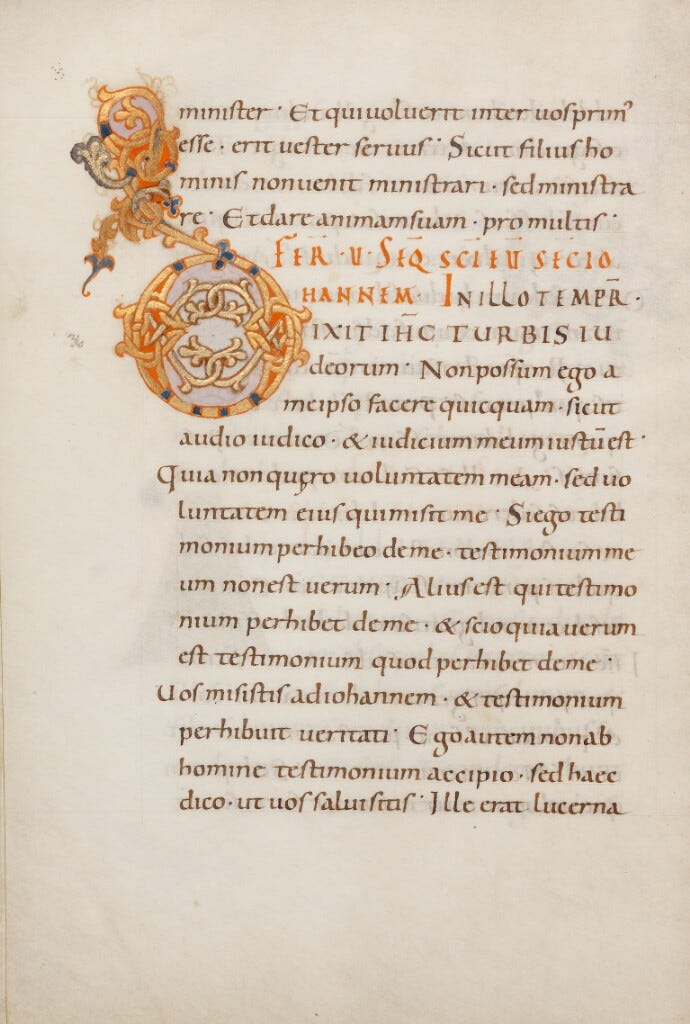 minister · Et qui voluerit inter uos prim⁹
esse · erit uester seruus · Sicut filius ho
minis non uenit ministrari · sed ministra
re · Et dare animam suam · pro multis ·
FER · U · SEQ̄ SC̄I EŪ SEC̄ IO
HANNEM · IN ILLO TEMPR̄ ·
DIXIT IH̄C TURBIS IU
deorum · Non possum ego a
me ipso facere quicquam · sicut
audio iudico · & iudicium meum iustū est ·
Quia non quęro uoluntatem meam · sed uo
luntatem eius qui misit me · Si ego testi
monium perhibeo de me · testimonium me
um non est uerum · Alius est qui testimo
nium perhibet de me · & scio quia uerum
est testimonium quod perhibet de me ·
Uos misistis ad iohannem · & testimonium
perhibuit ueritati · Ego autem non ab
homine testimonium accipio · sed haec
dico · ut uos salui sitis · Ille erat lucerna